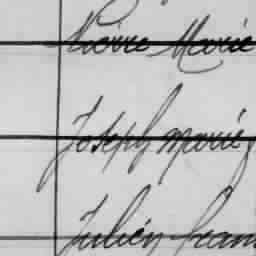 Pierre Marie
Joseph marie
Julien fran